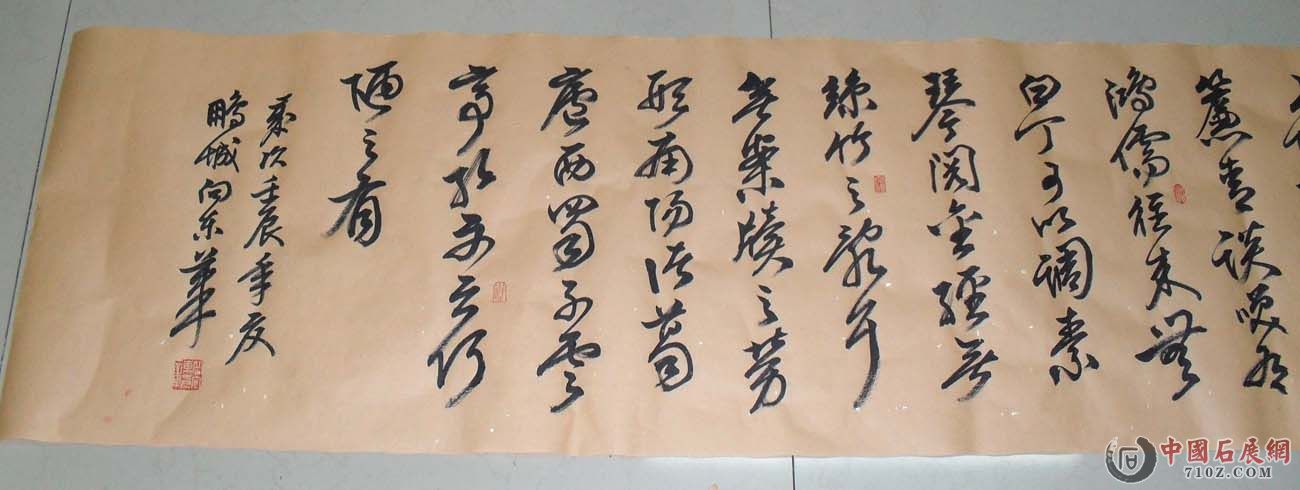 簾青談笑有
鴻儒往来無
白丁可以調素
琴閱金經無
絲竹之亂耳
無案牘之勞
形南陽諸葛
廬西蜀子雲
亭孔子云何
陋之有
歲次壬辰年夏
鵬城向东華
中國石展網
710Z.COM